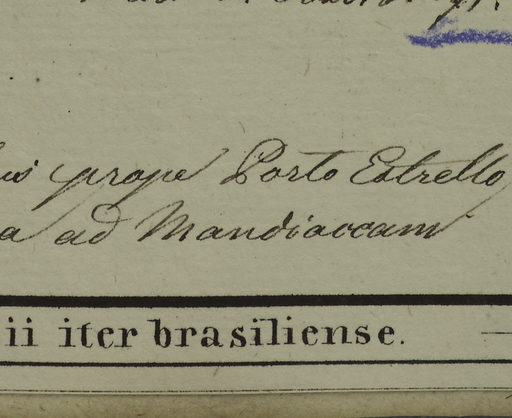 prope Porto Estrello
a ad Mandioccam
ii iter brasiliense.